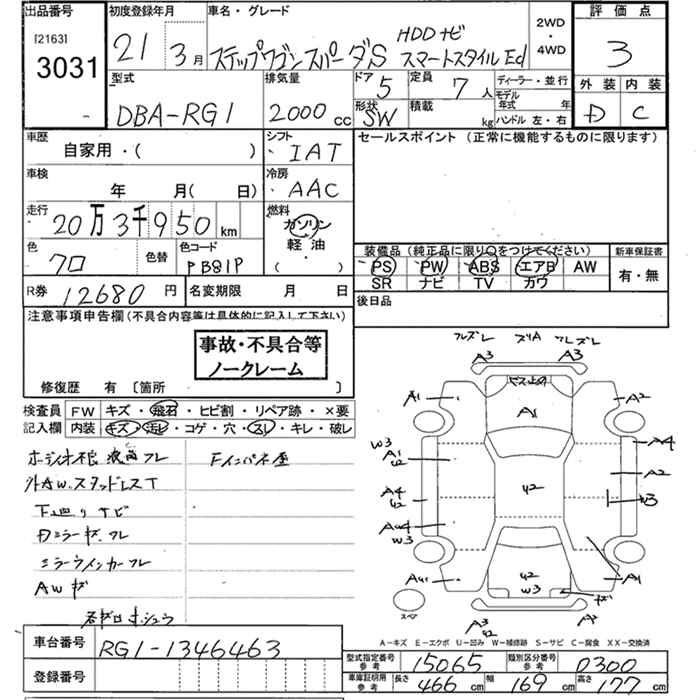 出品番号 初度登録年月 車名・グレード 2WD・4WD 評価点
[2163] 3031 21 3月 ステップワゴンスパーダS HDDナビ スマートスタイルEd 3
型式 排気量 ドア 定員 ディーラー・並行 外装 内装
DBA-RG1 2000cc 5 7人 モデル年式 年 D C
形状 SW 積載 kg ハンドル 左・右
車歴 シフト セールスポイント (正常に機能するものに限ります)
自家用・( ) IAT
車検 冷房
年 月( 日) AAC
走行 燃料
20万3千950km ガソリン
軽油
( )
色 色替 色コード 装備品(純正品に限り○をつけてください) 新車保証書
クロ PB81P PS PW ABS エアB AW 有・無
SR ナビ TV カワ
R券 12680円 名変期限 月 日 後日品
注意事項申告欄(不具合内容等は具体的に記入して下さい)
事故・不具合等
ノークレーム
修復歴 有 〔箇所 〕
検査員 FW キズ・飛石・ヒビ割・リペア跡・×要
記入欄 内装 キズ・汚レ・コゲ・穴・スレ・キレ・破レ
外AW.スタッドレスT
下廻りサビ
Dミラーキズ フレ
ミラーウインカーフレ
AWキズ
A3 ズリA A3
A1 A1 A2
W3 A1 U2 A4
A2
A4 U2 U2 W3
W3
U2 W3 A1
スペア A3 U2
A-キズ E-エクボ U-凹み W-補修跡 S-サビ C-腐食 XX-交換済
車台番号 RG1-1346463
登録番号
型式指定番号 参考 15065 類別区分番号 参考 0300
車庫証明用 参考 長さ 466cm 幅 169cm 高さ 177cm